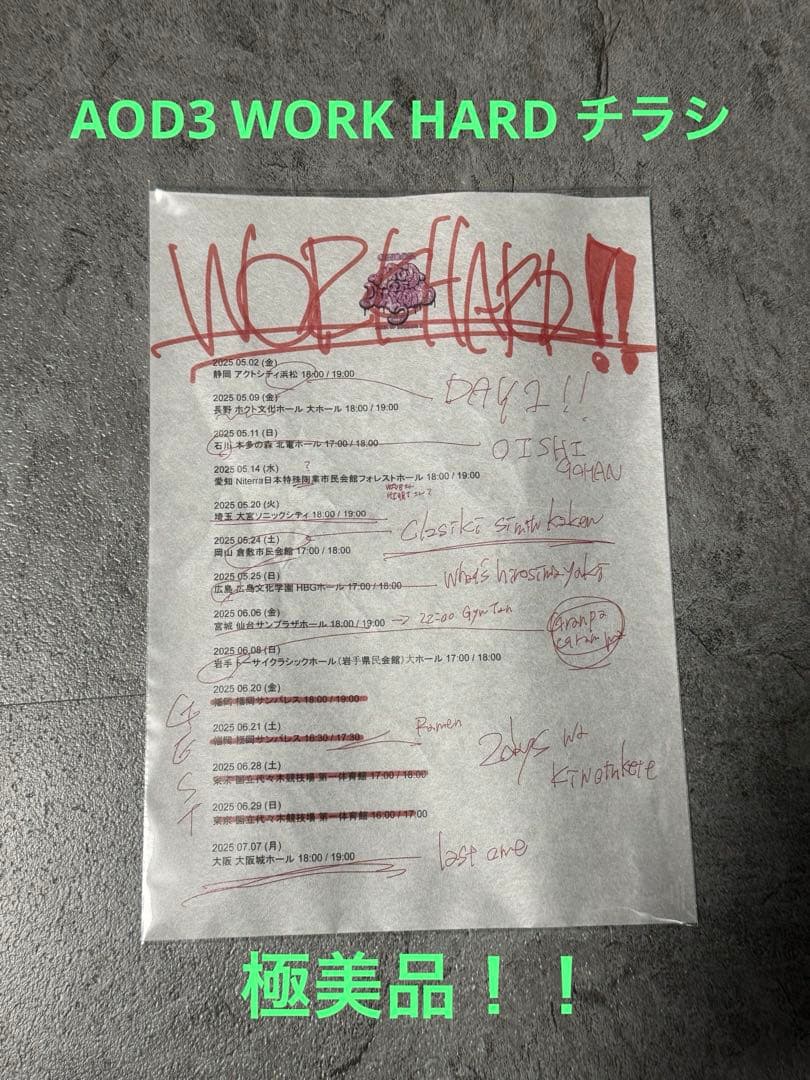 AOD3 WORK HARD チラシ
WORK HARD!!
2025 05.02 (金)
静岡 アクトシティ浜松 18:00 / 19:00
DAY 1!!
2025 05.09 (金)
長野 ホクト文化ホール 大ホール 18:00 / 19:00
2025 05.11 (日)
石川 本多の森 北電ホール 17:00 / 18:00
OISHI
GOHAN
2025 05.14 (水)
?
愛知 Niterra日本特殊陶業市民会館フォレストホール 18:00 / 19:00
2025 05.20 (火)
埼玉 大宮ソニックシティ 18:00 / 19:00
Clasiki
2025 05.24 (土)
岡山 倉敷市民会館 17:00 / 18:00
2025 05.25 (日)
広島 広島文化学園 HBGホール 17:00 / 18:00
hirosimayaki
2025 06.06 (金)
宮城 仙台サンプラザホール 18:00 / 19:00
→ 22:00 GyuTan
Granpa
2025 06.08 (日)
岩手 トーサイクラシックホール（岩手県民会館）大ホール 17:00 / 18:00
2025 06.20 (金)
福岡 福岡サンパレス 18:00 / 19:00
2025 06.21 (土)
福岡 福岡サンパレス 16:30 / 17:30
Ramen
2days wa
kiwotukete
2025 06.28 (土)
東京 国立代々木競技場 第一体育館 17:00 / 18:00
2025 06.29 (日)
東京 国立代々木競技場 第一体育館 16:00 / 17:00
2025 07.07 (月)
大阪 大阪城ホール 18:00 / 19:00
last
極美品！！